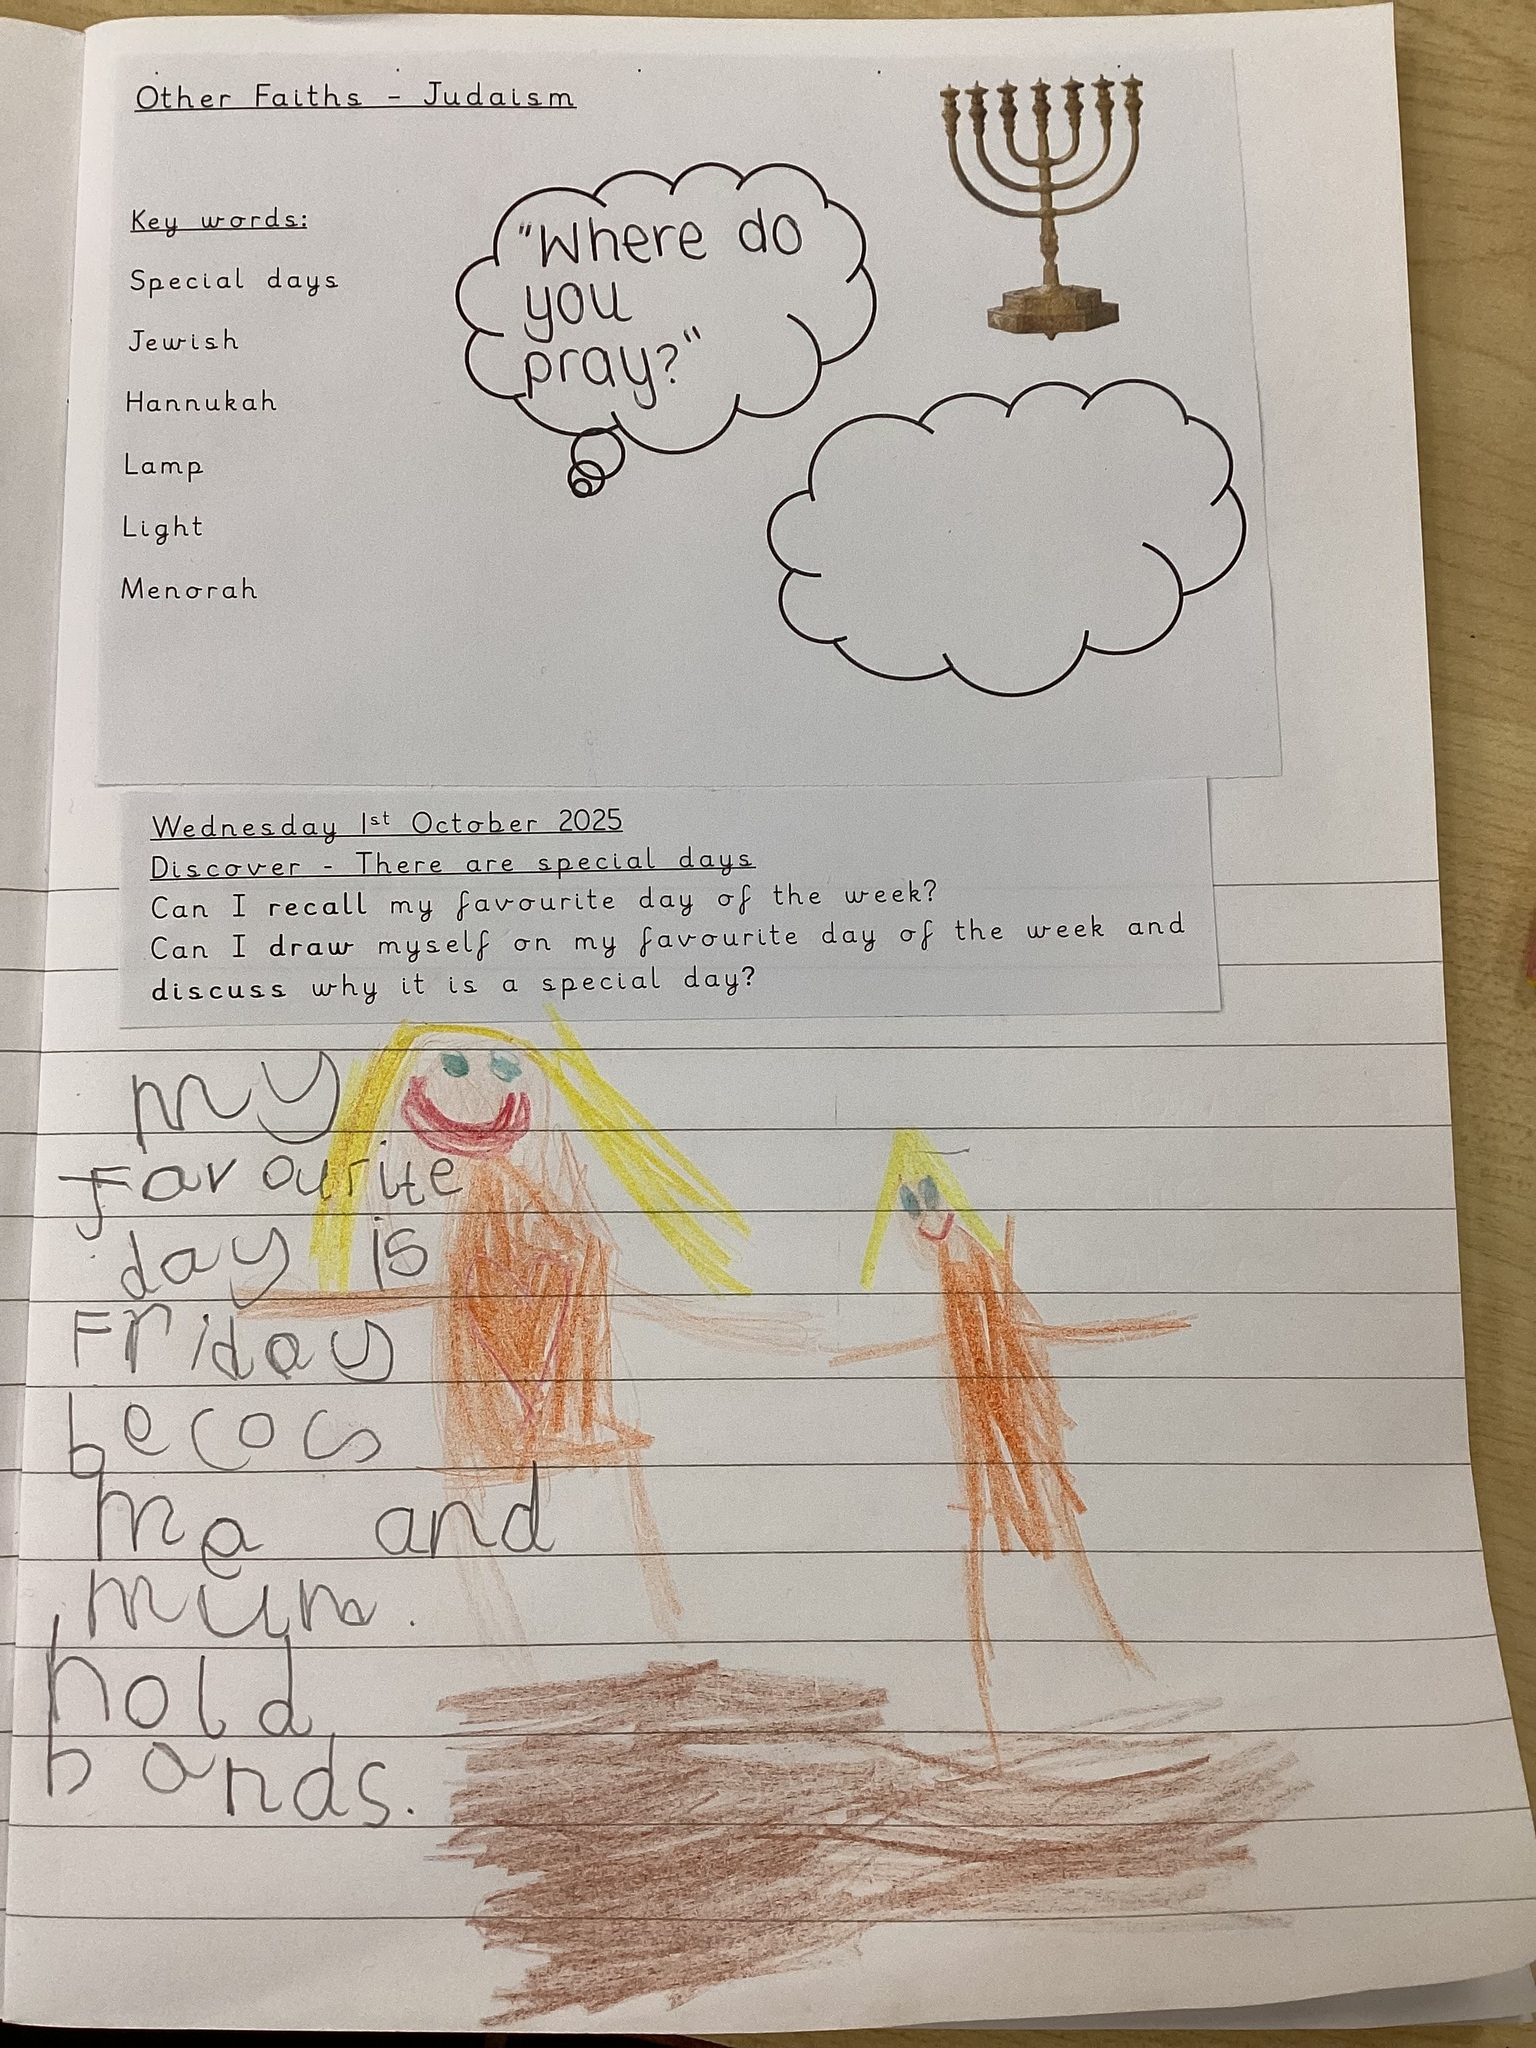 Other Faiths - Judaism
Key words:
Special days
Jewish
Hannukah
Lamp
Light
Menorah
"Where do
you
pray?"
Wednesday 1st October 2025
Discover - There are special days
Can I recall my favourite day of the week?
Can I draw myself on my favourite day of the week and
discuss why it is a special day?
my
favourite
day is
Friday
becocs
me and
mum.
hold
hands.